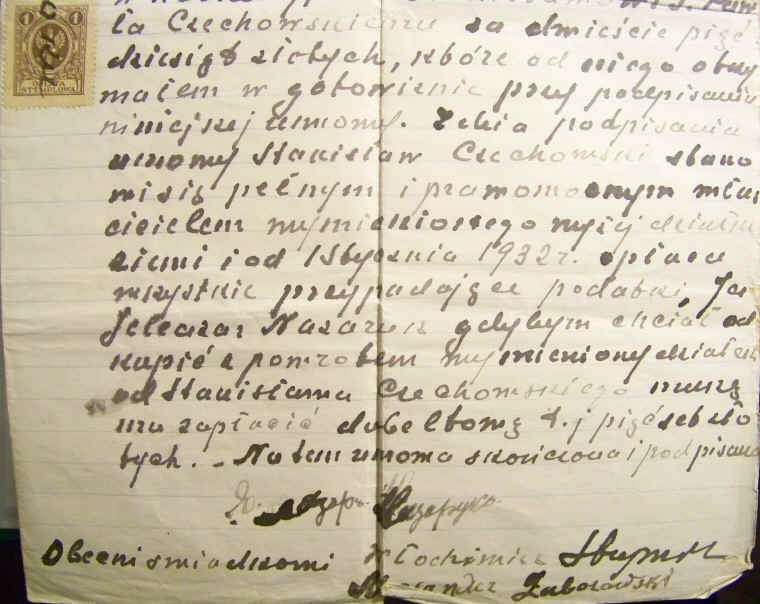 1 1
OPŁATA
STEMPLOWA
ła Czechowskiemu za dwieście pięć
dziesiąt złotych, które od niego otrzy
małem w gotowiznie przy podpisaniu
niniejszej umowy. Z dnia podpisania
umowy Stanisław Czechowski stano
wi się pełnym i prawomocnym właś
cicielem wymienionego wyżej działku
ziemi i od 1 Stycznia 1932 r. opłaca
wszystkie przypadające podatki, Ja
Jeleazar Nazaruk gdybym chciał od
kupić z powrotem wymieniony działek
od Stanisława Czechowskiego muszę
mu zapłacić dubeltową t.j pięćset zło
tych. - Na tem umowa skończona i podpisana
Obecni świadkowi Włochimier
Zaborowski